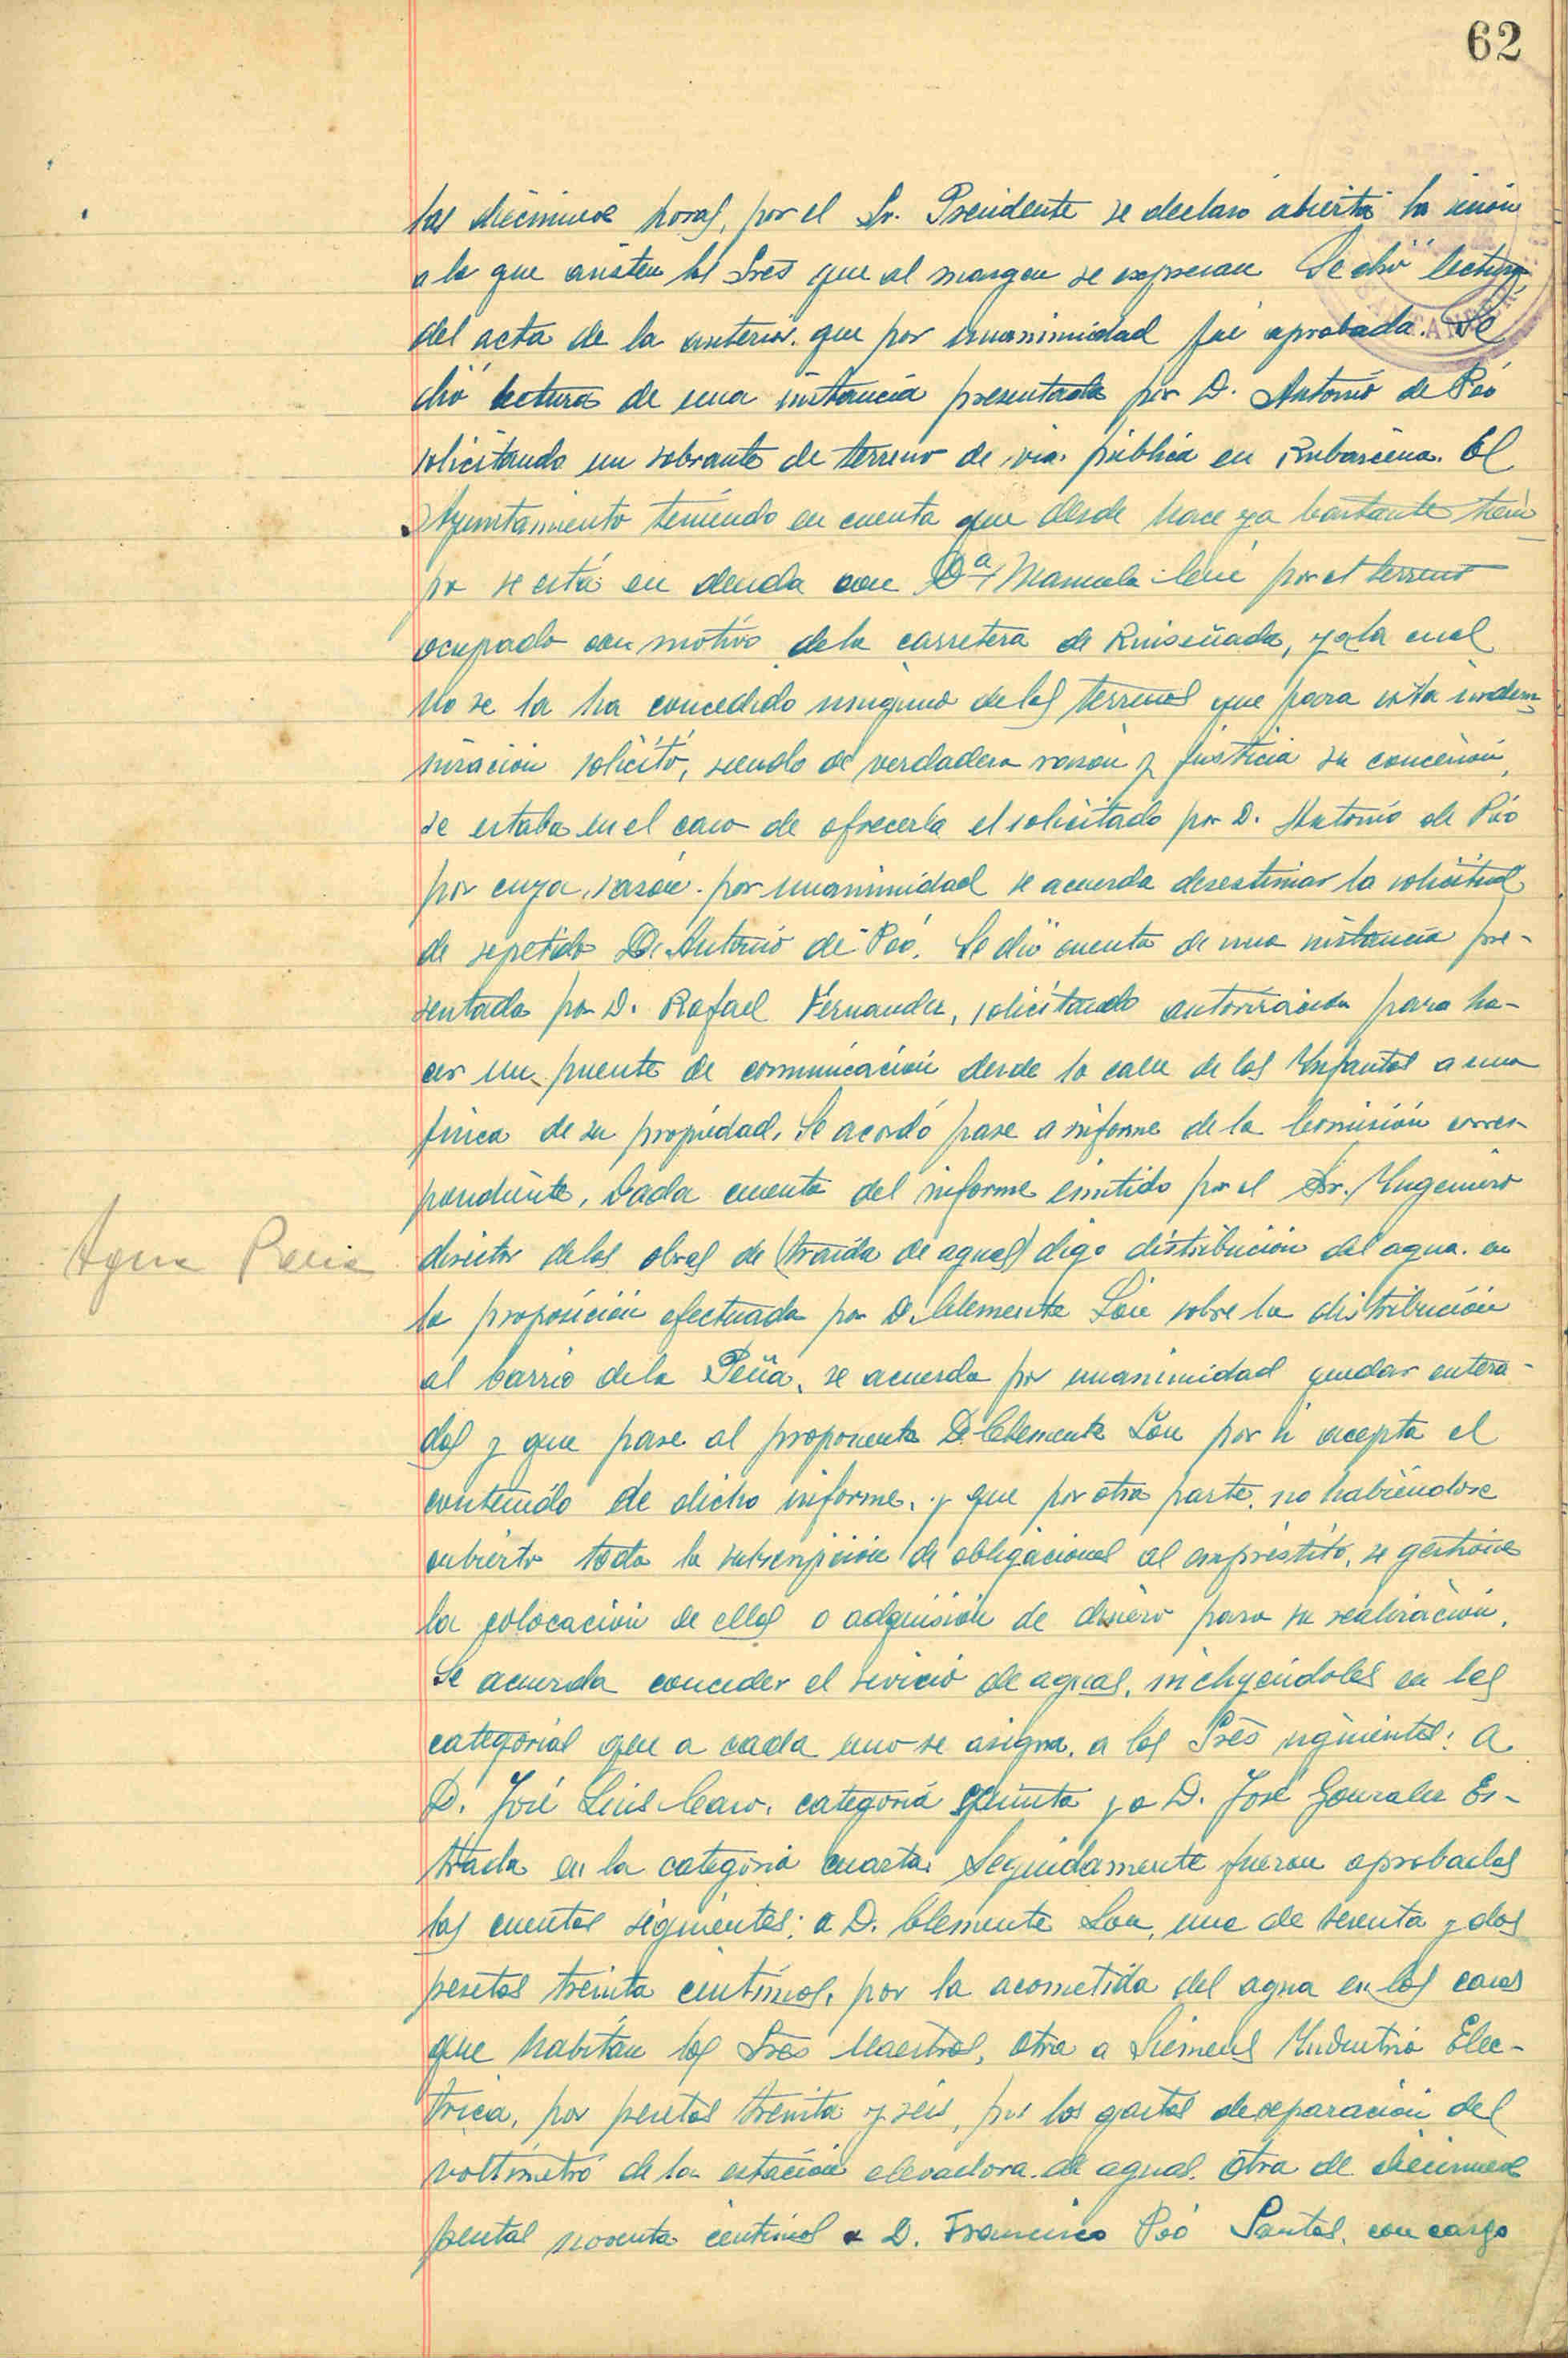 62
las diecinueve horas, por el Sr. Presidente se declaró abierta la sesión
a la que asisten los Sres que al margen se expresan Se dió lectura
del acta de la anterior. que por unanimidad fué aprobada. Se
dió lectura de una instancia presentada por D. Antonio de Poó
solicitando un sobrante de terreno de via pública en Rubarcena. El
Ayuntamiento teniendo en cuenta que desde hace ya bastante tiem
po se está en deuda con Dª Manuela por el terreno
ocupado con motivo de la carretera de Ruiseñada, y a la cual
no se la ha concedido ninguno de los terrenos que para esta indem
nización solicitó, siendo de verdadera razón y justicia su concesión,
se estaba en el caso de ofrecerla el solicitado por D. Antonio de Poó
por cuya, razón. por unanimidad se acuerda desestimar la solicitud
de repetido D. Antonio de Poó. Se dió cuenta de una instancia pre-
sentada por D. Rafael Fernandez, solicitando autorización para ha-
cer un puente de comunicación desde la calle de los Infantes a una
finca de su propiedad. Se acordó pase a informe de la Comisión corres-
pondiente. Dada cuenta del informe emitido por el Sr. Ingeniero
director de las obras de (traida de aguas) digo distribución del agua. en
la proposición efectuada por D. Clemente Lón sobre la distribución
al barrio de la Peña, se acuerda por unanimidad quedar entera-
dos y que pase al proponente D. Clemente Lón por si acepta el
contenido de dicho informe, y que por otra parte, no habiéndose
cubierto toda la subscripción de obligaciones al empréstito, se gestione
la colocación de ellas o adquisión de dinero para su realización.
Se acuerda conceder el sevicio de aguas, incluyéndoles en las
categorias que a cada uno se asigna, a los Sres siguientes: a
D. José Luis Caso, categoria quinta y a D. José Gonzalez Es-
trada en la categoria cuarta. Seguidamente fueron aprobadas
las cuentas siguientes: a D. Clemente Lon, una de setenta y dos
pesetas treinta centimos, por la acometida del agua en las casas
que habitan los Sres Maestros, otra a Siemens Industria Elec-
trica, por pesetas treinta y seis, por los gastos de reparación del
voltimetro de la estación elevadora de aguas. otra de diecinueve
pesetas noventa centimos a D. Francisco Poó Santos, con cargo
Agua Peña